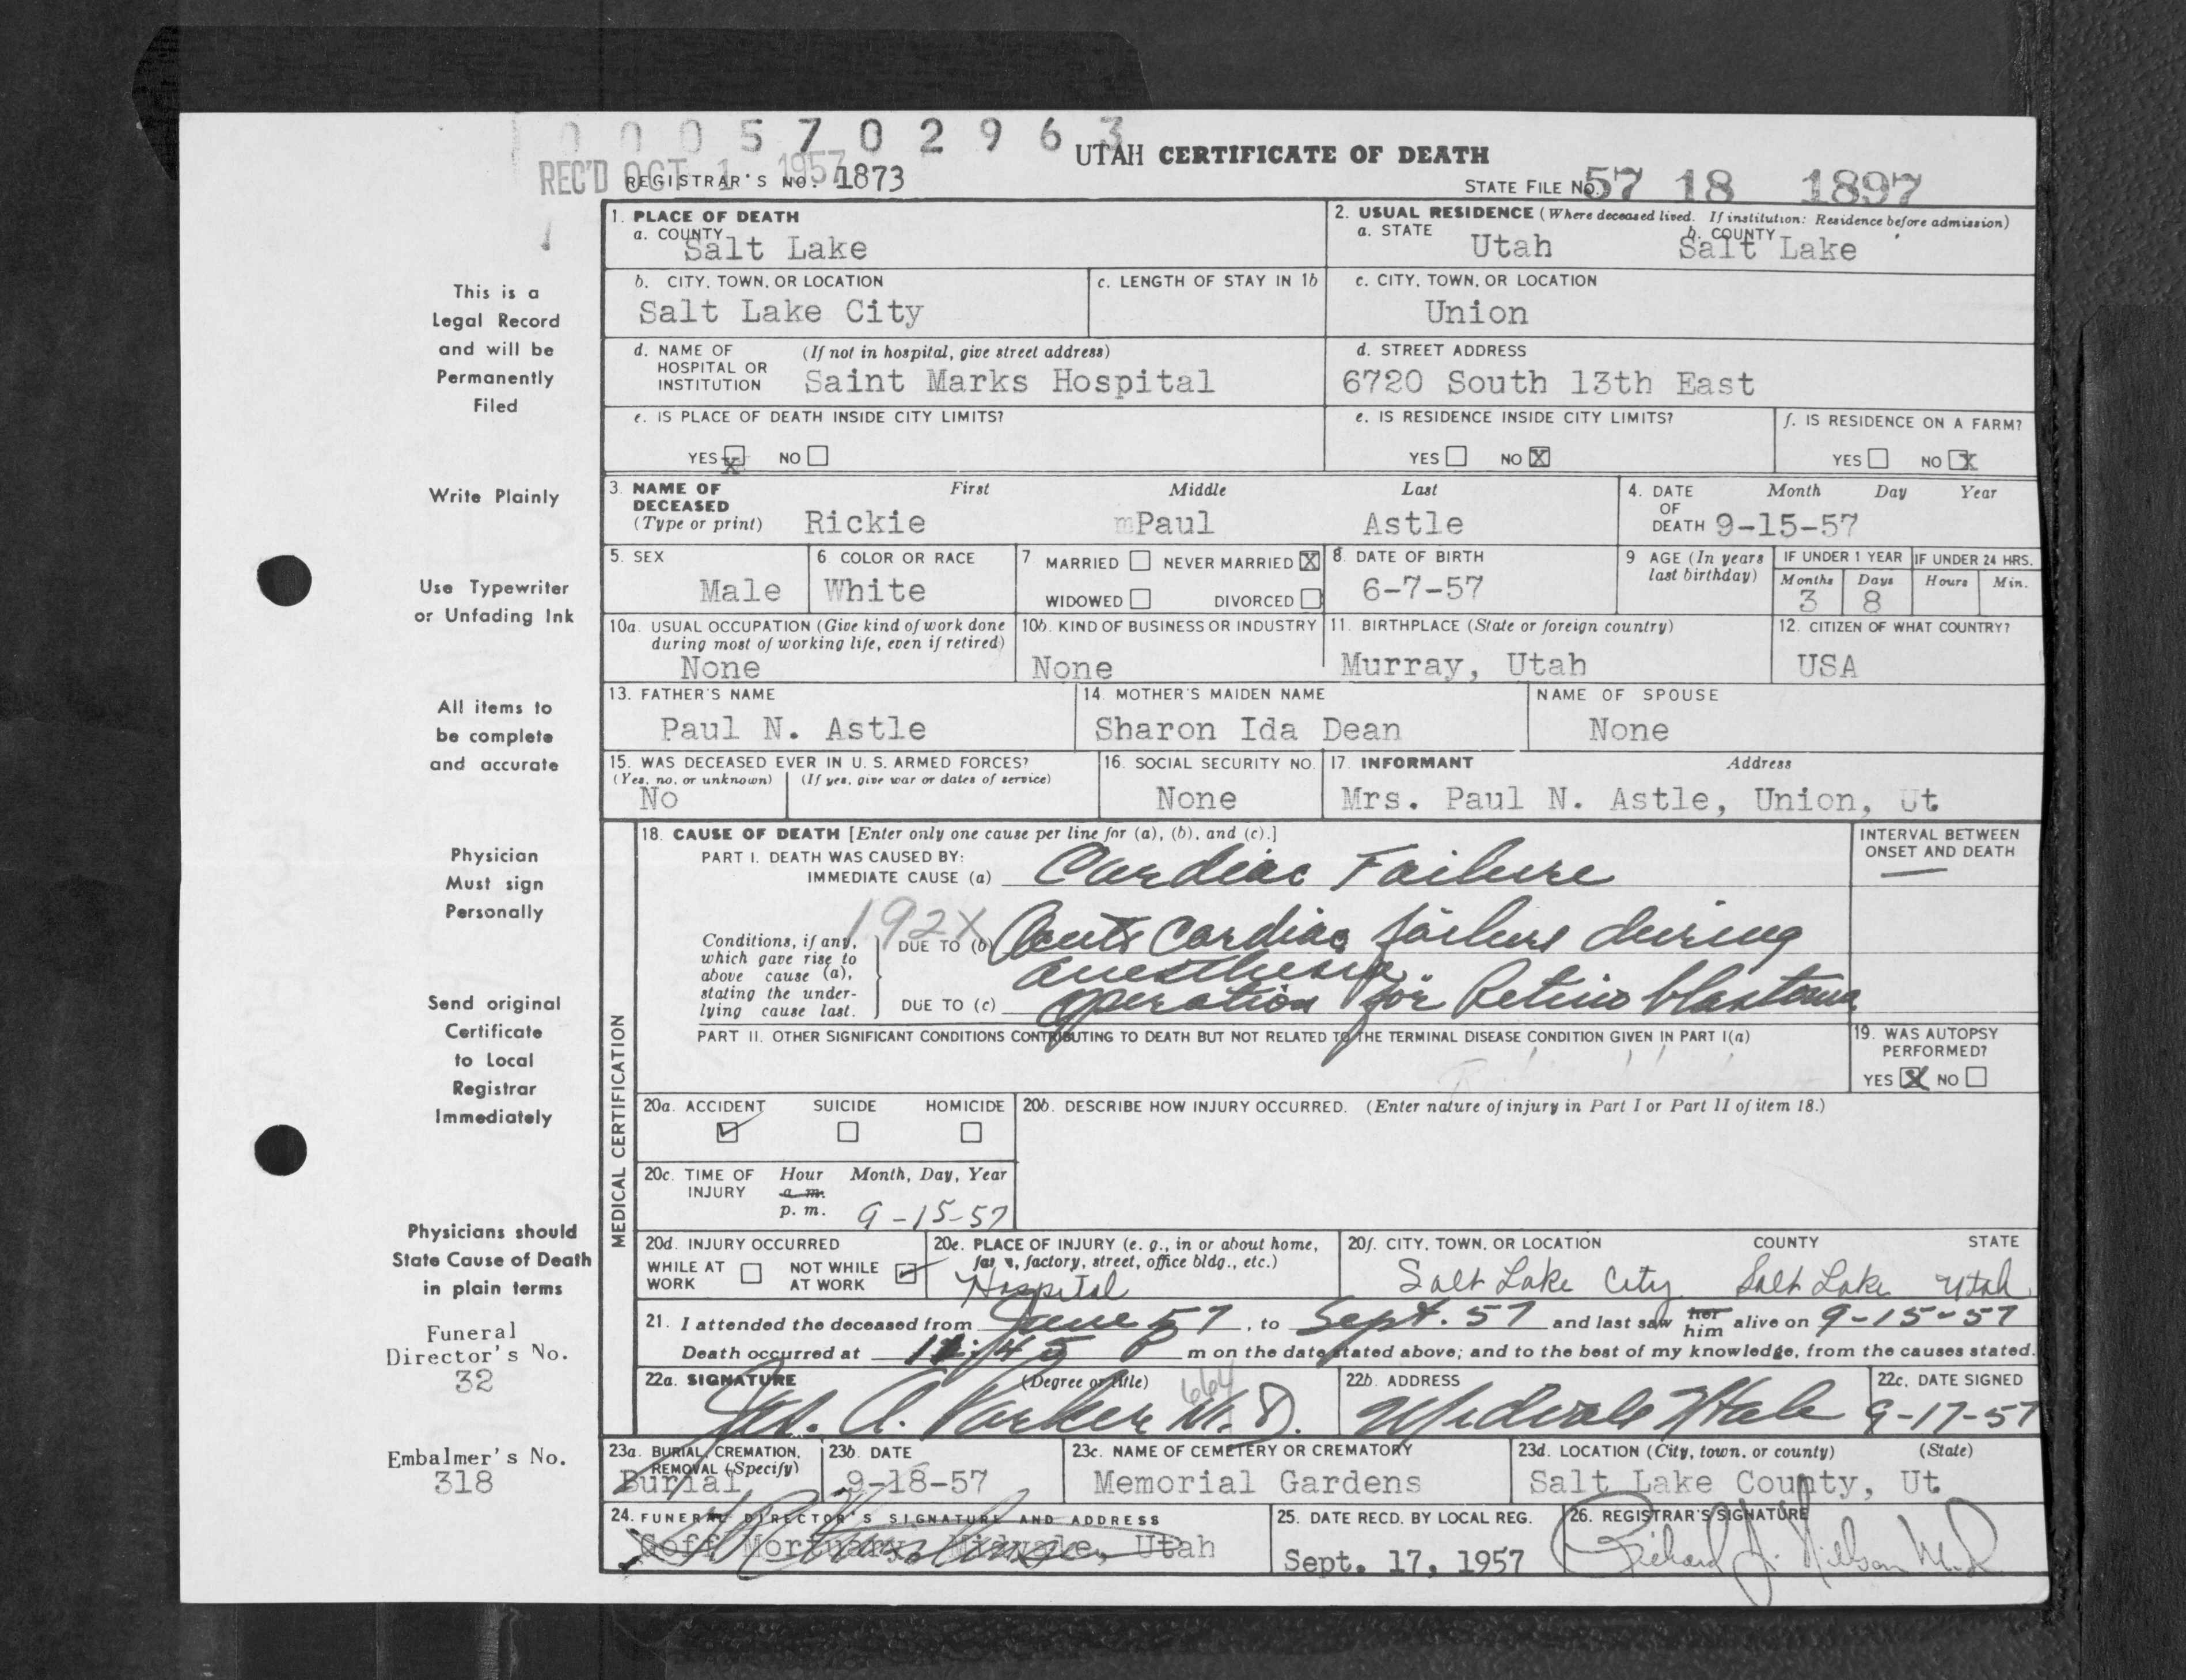 0 0 0 5 7 0 2 9 6 3
UTAH CERTIFICATE OF DEATH
REC'D OCT 1 1957
REGISTRAR'S NO. 1873
STATE FILE NO. 57 18 1897
1. PLACE OF DEATH
a. COUNTY
Salt Lake
2. USUAL RESIDENCE (Where deceased lived. If institution: Residence before admission)
a. STATE Utah b. COUNTY Salt Lake
b. CITY, TOWN, OR LOCATION
Salt Lake City
c. LENGTH OF STAY IN 1b
c. CITY, TOWN, OR LOCATION
Union
d. NAME OF HOSPITAL OR INSTITUTION (If not in hospital, give street address)
Saint Marks Hospital
d. STREET ADDRESS
6720 South 13th East
e. IS PLACE OF DEATH INSIDE CITY LIMITS?
YES X NO
e. IS RESIDENCE INSIDE CITY LIMITS?
YES NO X
f. IS RESIDENCE ON A FARM?
YES NO X
3. NAME OF DECEASED (Type or print)
First Middle Last
Rickie mPaul Astle
4. DATE OF DEATH Month Day Year
9-15-57
5. SEX
Male
6. COLOR OR RACE
White
7 MARRIED NEVER MARRIED X
WIDOWED DIVORCED
8. DATE OF BIRTH
6-7-57
9 AGE (In years last birthday)
IF UNDER 1 YEAR IF UNDER 24 HRS.
Months Days Hours Min.
3 8
10a. USUAL OCCUPATION (Give kind of work done during most of working life, even if retired)
None
10b. KIND OF BUSINESS OR INDUSTRY
None
11. BIRTHPLACE (State or foreign country)
Murray, Utah
12. CITIZEN OF WHAT COUNTRY?
USA
13. FATHER'S NAME
Paul N. Astle
14. MOTHER'S MAIDEN NAME
Sharon Ida Dean
NAME OF SPOUSE
None
15. WAS DECEASED EVER IN U. S. ARMED FORCES?
(Yes, no, or unknown) (If yes, give war or dates of service)
No
16. SOCIAL SECURITY NO.
None
17. INFORMANT Address
Mrs. Paul N. Astle, Union, Ut
MEDICAL CERTIFICATION
18. CAUSE OF DEATH [Enter only one cause per line for (a), (b), and (c).]
INTERVAL BETWEEN ONSET AND DEATH
PART I. DEATH WAS CAUSED BY:
IMMEDIATE CAUSE (a) Cardiac Failure
192X
Conditions, if any, which gave rise to above cause (a), stating the underlying cause last.
DUE TO (b) Acute Cardiac failure during
anesthesia.
DUE TO (c) operation for Retino blastoma
PART II. OTHER SIGNIFICANT CONDITIONS CONTRIBUTING TO DEATH BUT NOT RELATED TO THE TERMINAL DISEASE CONDITION GIVEN IN PART I(a)
19. WAS AUTOPSY PERFORMED?
YES X NO
20a. ACCIDENT SUICIDE HOMICIDE
20b. DESCRIBE HOW INJURY OCCURRED. (Enter nature of injury in Part I or Part II of item 18.)
20c. TIME OF INJURY Hour Month, Day, Year
a. m.
p. m. 9-15-57
20d. INJURY OCCURRED
WHILE AT WORK NOT WHILE AT WORK
20e. PLACE OF INJURY (e. g., in or about home, farm, factory, street, office bldg., etc.)
Hospital
20f. CITY, TOWN, OR LOCATION COUNTY STATE
Salt Lake City Salt Lake Utah
21. I attended the deceased from June 57, to Sept. 57 and last saw her him alive on 9-15-57
Death occurred at 12:45 P m on the date stated above; and to the best of my knowledge, from the causes stated.
22a. SIGNATURE (Degree or title)
Jas. A. Parker M.D.
664
22b. ADDRESS
Midvale Utah
22c. DATE SIGNED
9-17-57
23a. BURIAL, CREMATION, REMOVAL (Specify)
Burial
23b. DATE
9-18-57
23c. NAME OF CEMETERY OR CREMATORY
Memorial Gardens
23d. LOCATION (City, town, or county) (State)
Salt Lake County, Ut
24. FUNERAL DIRECTOR'S SIGNATURE AND ADDRESS
Goff Mortuary, Midvale, Utah
25. DATE RECD. BY LOCAL REG.
Sept. 17, 1957
26. REGISTRAR'S SIGNATURE
Richard J. Nielson M.D.
This is a
Legal Record
and will be
Permanently
Filed
Write Plainly
Use Typewriter
or Unfading Ink
All items to
be complete
and accurate
Physician
Must sign
Personally
Send original
Certificate
to Local
Registrar
Immediately
Physicians should
State Cause of Death
in plain terms
Funeral
Director's No.
32
Embalmer's No.
318